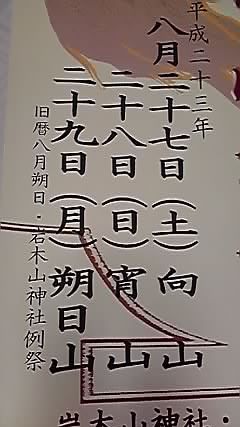 平成二十三年
八月二十七日（土）向山
二十八日（日）宵山
二十九日（月）朔日山
旧暦八月朔日・岩木山神社例祭
岩木山神社・